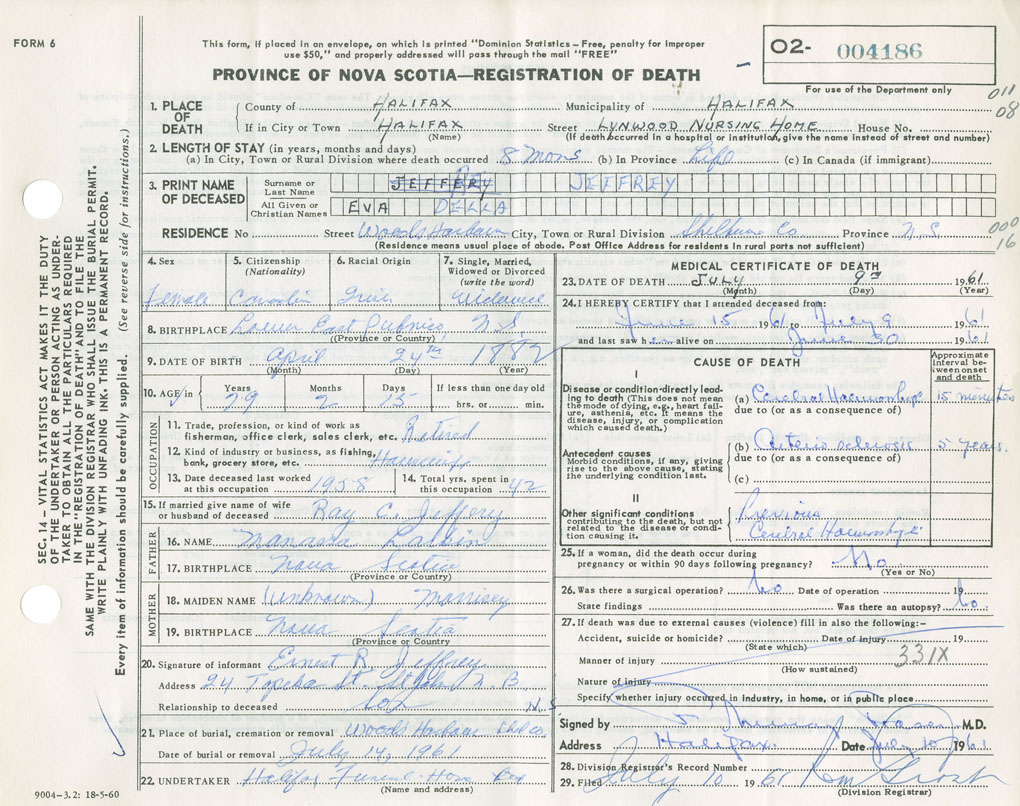 FORM 6
This form, if placed in an envelope, on which is printed "Dominion Statistics – Free, penalty for improper
use $50," and properly addressed will pass through the mail "FREE"
PROVINCE OF NOVA SCOTIA—REGISTRATION OF DEATH
02- 004186
For use of the Department only
011
08
1. PLACE OF DEATH
County of HALIFAX Municipality of HALIFAX
If in City or Town HALIFAX Street LYNWOOD NURSING HOME House No.
(Name) (If death occurred in a hospital or institution, give the name instead of street and number)
2. LENGTH OF STAY (in years, months and days)
(a) In City, Town or Rural Division where death occurred 8 Mons (b) In Province Life (c) In Canada (if immigrant)
3. PRINT NAME OF DECEASED
Surname or Last Name JEFFERY JEFFREY
All Given or Christian Names EVA DELLA
RESIDENCE No Street Woods Harbour City, Town or Rural Division Shelburne Co Province N.S
(Residence means usual place of abode. Post Office Address for residents in rural parts not sufficient)
000
16
4. Sex
Female
5. Citizenship
(Nationality)
Canadian
6. Racial Origin
7. Single, Married,
Widowed or Divorced
(write the word)
8. BIRTHPLACE Lower East Pubnico N.S.
(Province or Country)
9. DATE OF BIRTH April 24th 1882
(Month) (Day) (Year)
10. AGE
Years 79
Months 2
Days 15
If less than one day old
hrs. or min.
OCCUPATION
11. Trade, profession, or kind of work as
fisherman, office clerk, sales clerk, etc. Retired
12. Kind of industry or business, as fishing,
bank, grocery store, etc. Housewife
13. Date deceased last worked
at this occupation 1958
14. Total yrs. spent in
this occupation 42
15. If married give name of wife
or husband of deceased Ray C. Jeffery
FATHER
16. NAME Manassa
17. BIRTHPLACE Nova Scotia
(Province or Country)
MOTHER
18. MAIDEN NAME (unknown) Morrisey
19. BIRTHPLACE Nova Scotia
(Province or Country)
20. Signature of informant Ernest R. Jeffrey
Address 24 Topeka St St John N.B.
Relationship to deceased son
N.S
21. Place of burial, cremation or removal Woods Harbour Shel Co.
Date of burial or removal July 14, 1961
22. UNDERTAKER Halifax Funeral Home
(Name and address)
9004-3.2: 18-5-60
SEC. 14 – VITAL STATISTICS ACT MAKES IT THE DUTY
OF THE UNDERTAKER OR PERSON ACTING AS UNDER-
TAKER TO OBTAIN ALL THE PARTICULARS REQUIRED
IN THE "REGISTRATION OF DEATH" AND TO FILE THE
SAME WITH THE DIVISION REGISTRAR WHO SHALL ISSUE THE BURIAL PERMIT.
WRITE PLAINLY WITH UNFADING INK. THIS IS A PERMANENT RECORD.
Every item of information should be carefully supplied. (See reverse side for instructions.)
MEDICAL CERTIFICATE OF DEATH
23. DATE OF DEATH JULY 9th 1961
(Month) (Day) (Year)
24. I HEREBY CERTIFY that I attended deceased from:
June 15 1961 to July 9 1961
and last saw her alive on June 30 1961
CAUSE OF DEATH
Approximate interval between onset and death
I
Disease or condition directly leading to death (This does not mean the mode of dying, e.g., heart failure, asthenia, etc. It means the disease, injury, or complication which caused death.)
(a) Cerebral Haemorrhage 15 minutes
due to (or as a consequence of)
Antecedent causes
Morbid conditions, if any, giving rise to the above cause, stating the underlying condition last.
(b) Arteriosclerosis 5 years.
due to (or as a consequence of)
(c)
II
Other significant conditions
contributing to the death, but not related to the disease or condition causing it.
Previous
Cerebral Haemorrhage
25. If a woman, did the death occur during
pregnancy or within 90 days following pregnancy? No
(Yes or No)
26. Was there a surgical operation? No Date of operation 19
State findings Was there an autopsy? No
27. If death was due to external causes (violence) fill in also the following:–
Accident, suicide or homicide? Date of injury 19
(State which)
Manner of injury 331X
(How sustained)
Nature of injury
Specify whether injury occurred in industry, in home, or in public place
Signed by M.D.
Address Halifax. Date July 10 1961
28. Division Registrar's Record Number
29. Filed July 10 1961
(Division Registrar)